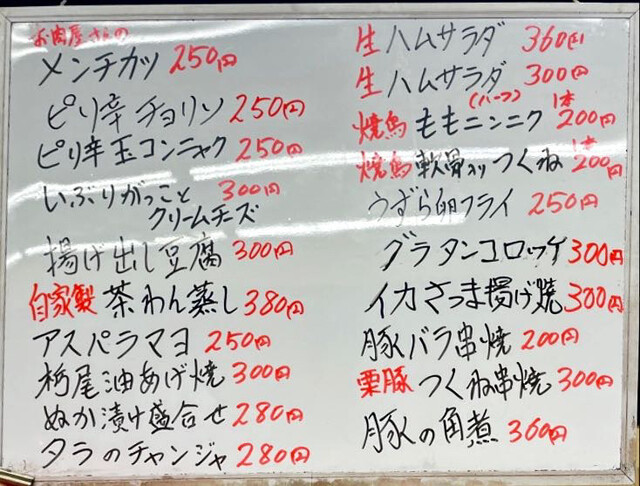 お肉屋さんの
メンチカツ 250円
ピリ辛チョリソ 250円
ピリ辛玉コンニャク 250円
いぶりがっこと 300円
クリームチーズ
揚げ出し豆腐 300円
自家製 茶わん蒸し 380円
アスパラマヨ 250円
栃尾油あげ焼 300円
ぬか漬け盛合せ 280円
タラのチャンジャ 280円
生ハムサラダ 360円
生ハムサラダ 300円
(ハーフ)
焼鳥 ももニンニク 1本 200円
焼鳥 軟骨入りつくね 1本 200円
うずら卵フライ 250円
グラタンコロッケ 300円
イカさつま揚げ焼 300円
豚バラ串焼 200円
栗豚 つくね串焼 300円
豚の角煮 360円